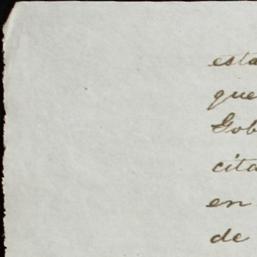 esta
que
Gob
cita
en
de